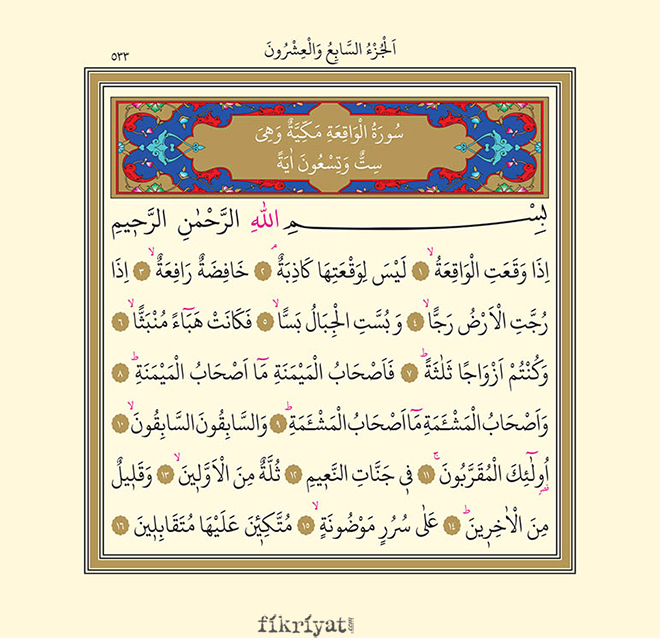 اَلْجُزْءُ السَّابِعُ وَالْعِشْرُونَ
٥٣٣
سُورَةُ الْوَاقِعَةِ مَكِّيَّةٌ وَهِىَ
سِتٌّ وَتِسْعُونَ اٰيَةً
بِسْمِ اللّٰهِ الرَّحْمٰنِ الرَّحٖيمِ
اِذَا وَقَعَتِ الْوَاقِعَةُۙ ﴿١﴾ لَيْسَ لِوَقْعَتِهَا كَاذِبَةٌۢ ﴿٢﴾ خَافِضَةٌ رَافِعَةٌۙ ﴿٣﴾ اِذَا
رُجَّتِ الْاَرْضُ رَجًّاۙ ﴿٤﴾ وَبُسَّتِ الْجِبَالُ بَسًّاۙ ﴿٥﴾ فَكَانَتْ هَبَٓاءً مُنْبَثًّاۙ ﴿٦﴾
وَكُنْتُمْ اَزْوَاجًا ثَلٰثَةًؕ ﴿٧﴾ فَاَصْحَابُ الْمَيْمَنَةِ مَٓا اَصْحَابُ الْمَيْمَنَةِؕ ﴿٨﴾
وَاَصْحَابُ الْمَشْـَٔمَةِ مَٓا اَصْحَابُ الْمَشْـَٔمَةِؕ ﴿٩﴾ وَالسَّابِقُونَ السَّابِقُونَۙ ﴿١٠﴾
اُو۬لٰٓئِكَ الْمُقَرَّبُونَۚ ﴿١١﴾ فٖى جَنَّاتِ النَّعٖيمِ ﴿١٢﴾ ثُلَّةٌ مِنَ الْاَوَّلٖينَۙ ﴿١٣﴾ وَقَلٖيلٌ
مِنَ الْاٰخِرٖينَؕ ﴿١٤﴾ عَلٰى سُرُرٍ مَوْضُونَةٍۙ ﴿١٥﴾ مُتَّكِـٖٔينَ عَلَيْهَا مُتَقَابِلٖينَ ﴿١٦﴾
fikriyat.com